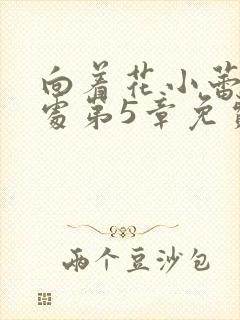 向着花小蕾
处第5章免
两个豆沙包